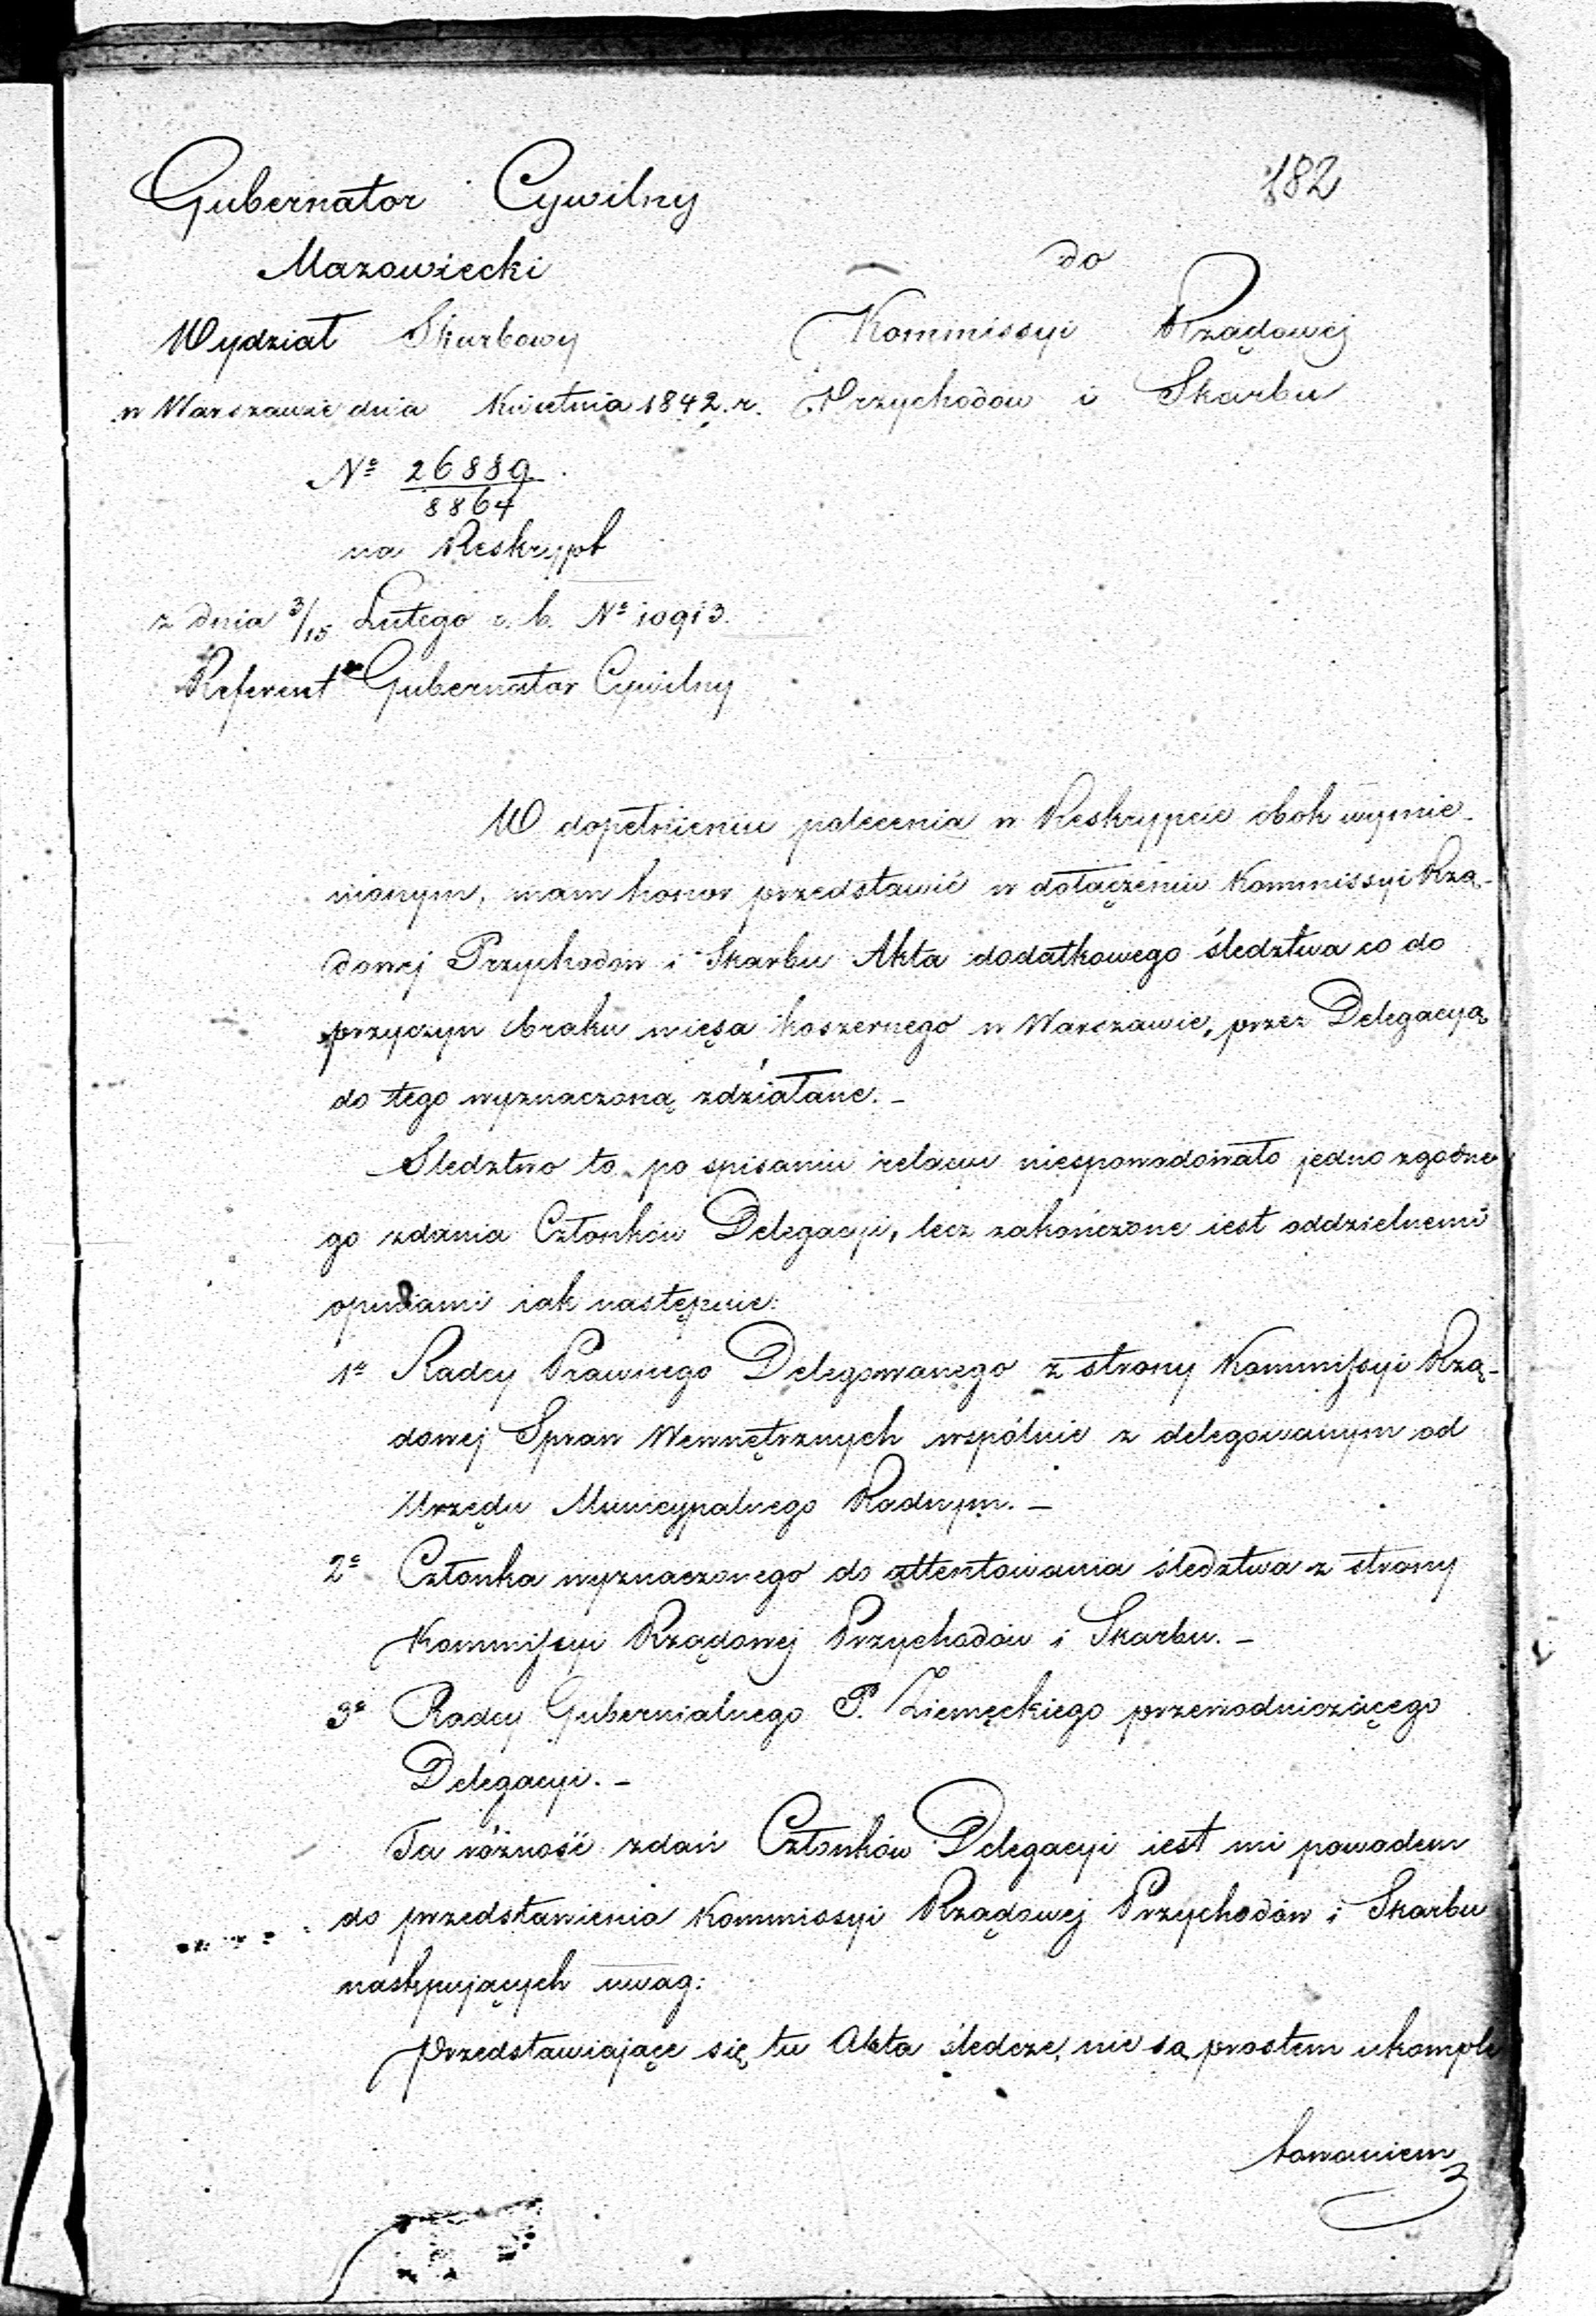 182
Gubernator Cywilny
Mazowiecki
Wydział Skarbowy
w Warszawie dnia Kwietnia 1842. r.
No 26889
8864
na Reskrypt
z dnia 3/15 Lutego r. b. No 10913.
Referent Gubernator Cywilny
do
Kommissyi Rządowej
Przychodów i Skarbu
W dopełnieniu polecenia w Reskrypcie obok wymie-
nionym, mam honor przedstawić w dołączeniu Kommissyi Rzą-
dowej Przychodów i Skarbu Akta dodatkowego śledztwa co do
przyczyn braku mięsa koszernego w Warszawie, przez Delegacyą
do tego wyznaczoną zdziałane. -
Sledztwo to po spisaniu relacyi niespowodowało jedno zgodne
go zdania Członków Delegacyi, lecz zakończone iest oddzielnemi
opiniami iak następuie:
1o Radcy Prawnego Delegowanego z strony Kommissyi Rzą-
dowej Spraw Wewnętrznych wspólnie z delegowanym od
Urzędu Municypalnego Radnym. -
2o Członka wyznaczonego do attentowania śledztwa z strony
Kommissyi Rządowej Przychodów i Skarbu. -
3o Radcy Gubernialnego P. Ziemęckiego przewodniczącego
Delegacyi. -
Ta różność zdań Członków Delegacyi iest mi powodem
do przedstawienia Kommissyi Rządowej Przychodów i Skarbu
następujących uwag:
Przedstawiające się tu Akta śledcze, nie są prostem ukomple
towaniem